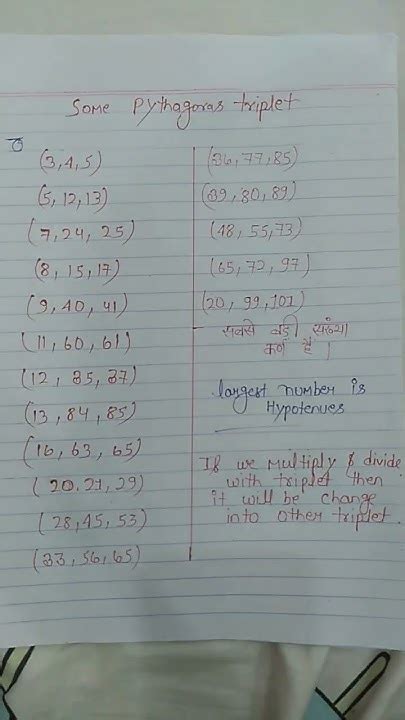 Some Pythagoras triplet
(3,4,5)
(5, 12, 13)
(7, 24, 25)
(8, 15, 17)
(9, 40, 41)
(11, 60, 61)
(12, 35, 37)
(13, 84, 85)
(16, 63, 65)
(20. 21, 29)
(28, 45, 53)
(33, 56, 65)
(36, 77, 85)
(39, 80, 89)
(48, 55, 73)
(65, 72, 97)
(20, 99, 101)
सबसे बड़ी संख्या
कर्ण है।
largest number is
Hypotenues
If we multiply & divide
with triplet then
it will be change
into other triplet.